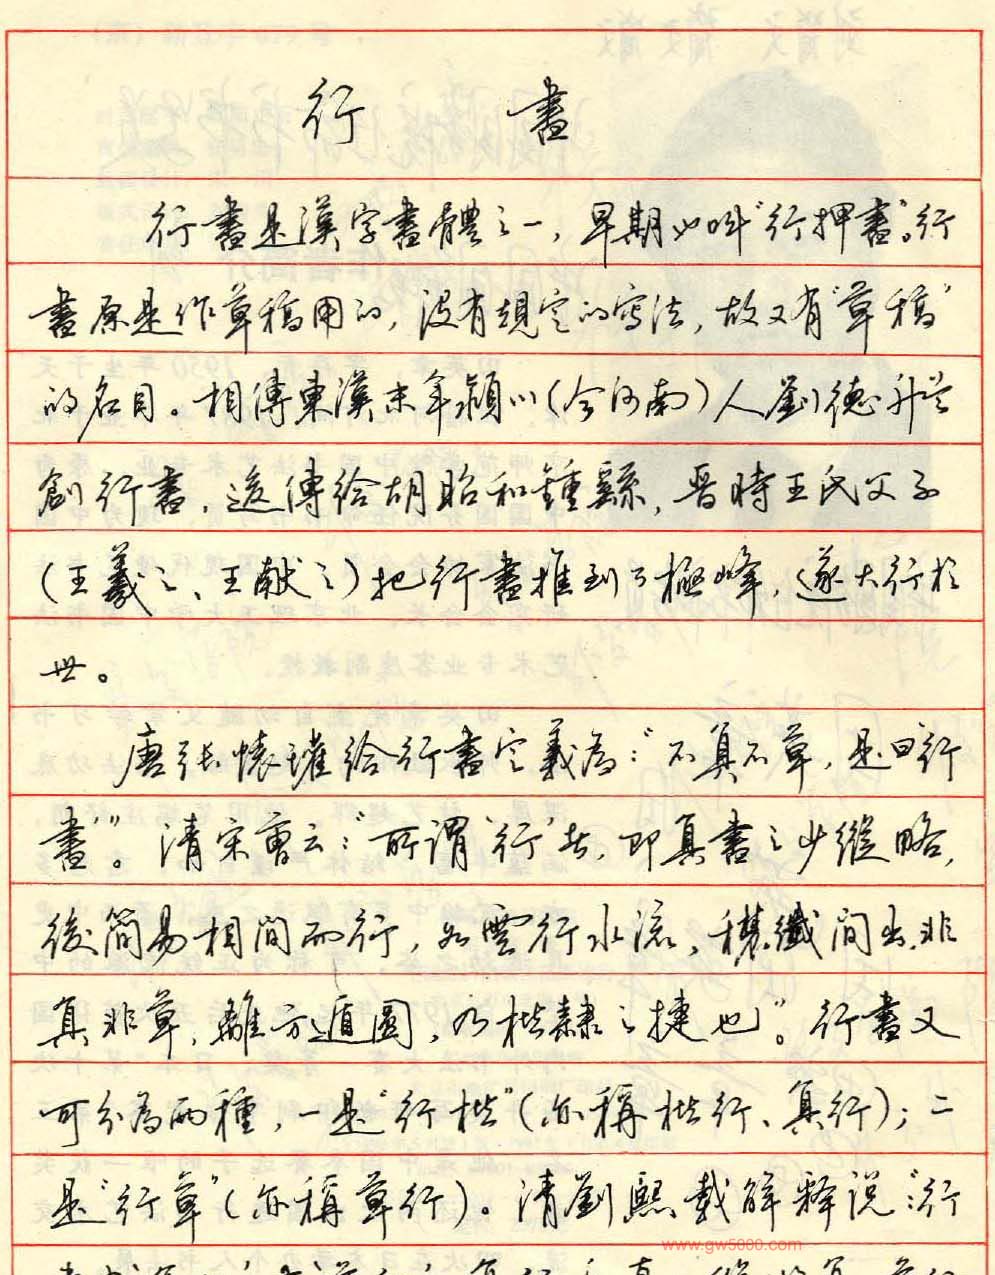 行 書
行書是漢字書體之一，早期也叫“行押書”。行
書原是作草稿用的，没有規定的寫法，故又有“草稿”
的名目。相傳東漢末年潁川（今河南）人劉德升首
創行書，後傳給胡昭和鍾繇，晋時王氏父子
（王羲之、王献之）把行書推到了極峰，遂大行於
世。
唐張懷瓘給行書定義為：“不真不草，是曰行
書”。清宋曹云：“所謂‘行’者，即真書之少縱略，
後簡易相間而行，如雲行水流，穠纖間出，非
真非草，離方遁圓，乃楷隸之捷也”。行書又
可分為兩種，一是“行楷”（亦稱楷行、真行）；二
是“行草”（亦稱草行）。清劉熙載解释说：“行
www.gw5000.com